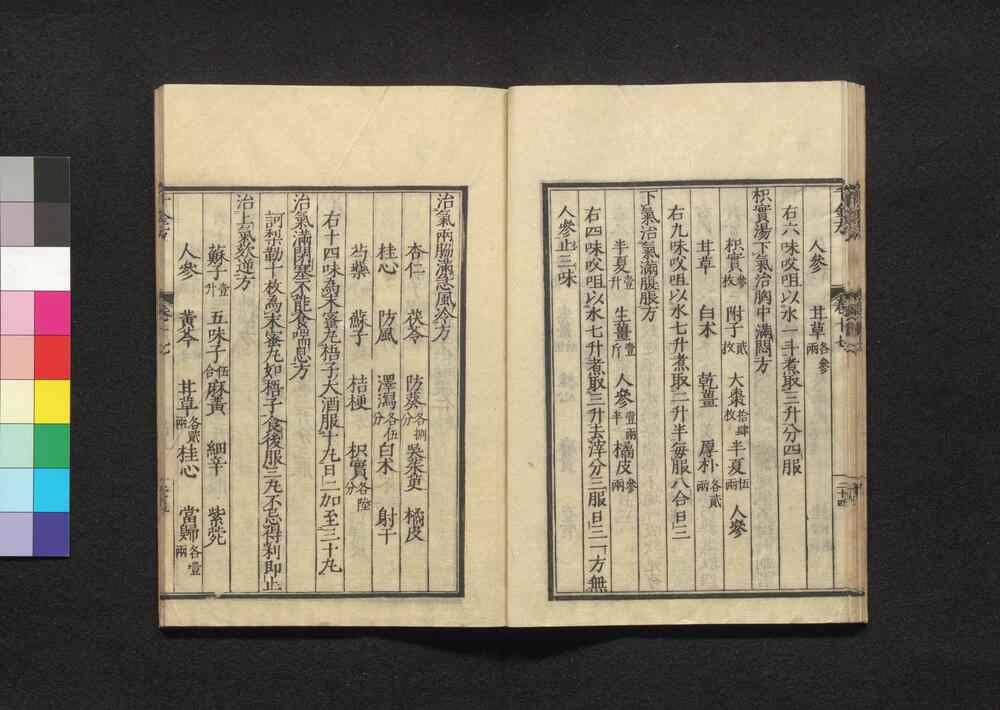 人參　甘草各參兩
右六味㕮咀以水一斗煮取三升分四服
枳實湯下氣治胸中滿悶方
枳實參枚　附子貳枚　大棗拾肆枚　半夏伍兩　人參
甘草　白术　乾薑　厚朴各貳兩
右九味㕮咀以水七升煮取二升半每服八合日三
下氣治氣滿腹脹方
半夏壹升　生薑壹斤　人參壹兩半　橘皮參兩
右四味㕮咀以水七升煮取三升去滓分三服日三一方無
人參止三味
治氣兩脇滿急風冷方
杏仁　茯苓　防葵各捌分　吳茱萸　橘皮
桂心　防風　澤瀉各伍分　白术　射干
芍藥　蘇子　桔梗　枳實各陸分
右十四味為末蜜丸梧子大酒服十丸日二加至三十丸
治氣滿閉塞不能食喘息方
訶梨勒十枚為末蜜丸如梧子食後服三丸不忌得利即止
治上氣欬逆方
蘇子壹升　五味子伍合　麻黃　細辛　紫菀
人參　黃芩　甘草各貳兩　桂心　當歸各壹兩